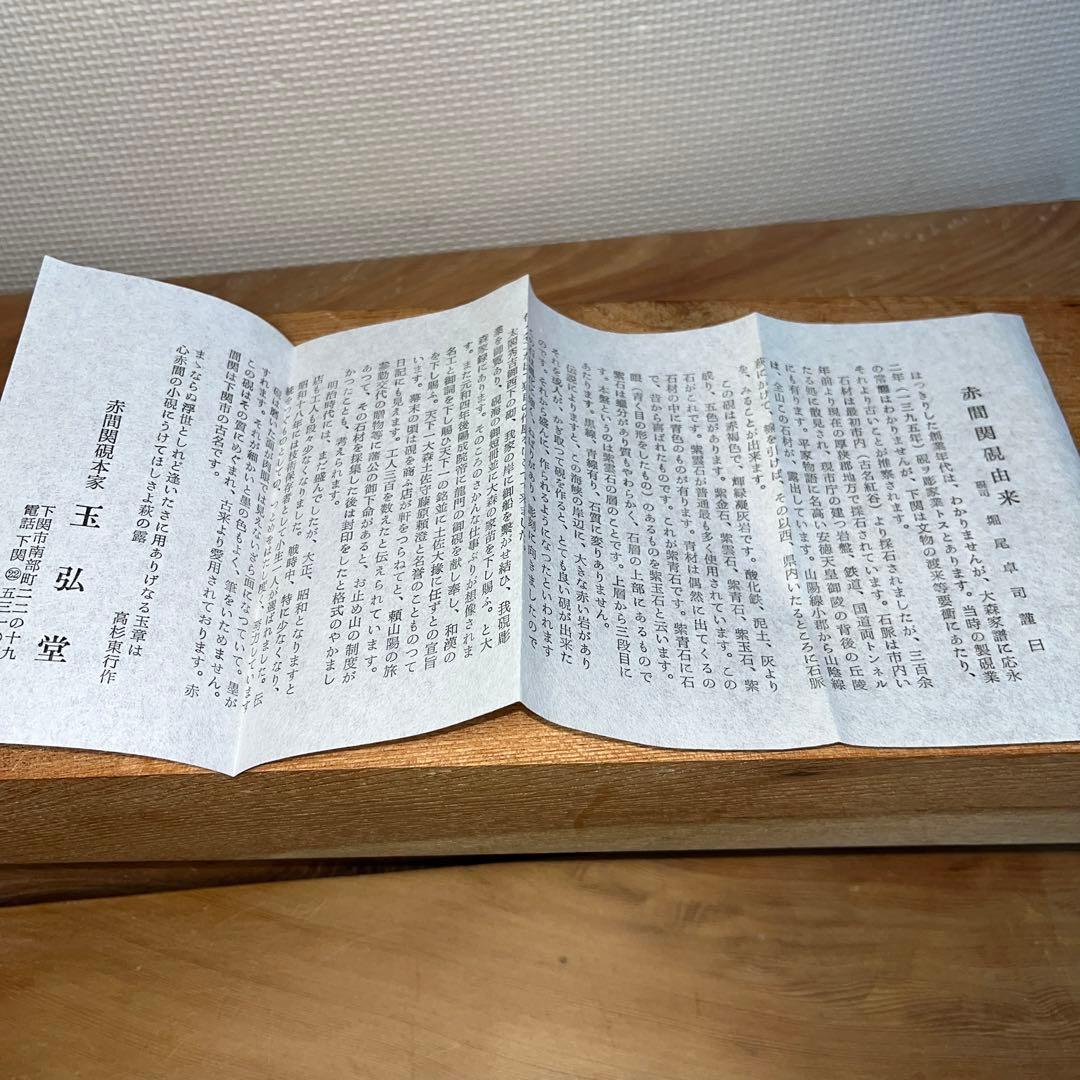 赤間関硯由来
硯司 堀尾卓司謹曰
はっきりした創業年代は、わかりませんが、大森家譜に応永
二年(一三九五年)硯ヲ彫家業トスとあります。当時の製硯業
の常態はわかりませんが、下関は文物の渡来等要衝にあたり、
それより古いことが推察されます。
石材は最初市内(古名紅谷)より採石されましたが、三百余
年前より現在の厚狭郡地方で採石されています。石脈は市内い
たる処に散見され、現市庁の建つ岩盤、鉄道、国道両トンネル
にも有ります。平家物語に名高い安徳天皇御陵の背後の丘陵
は、全山この石材が、露出しています。山陽線小郡から山陰線
萩にかけて、線を引けば、その以西、県内いたるところに石脈
を、みることが出来ます。
この硯は赤褐色で、輝緑凝灰岩です。酸化鉄、泥土、灰より
成り、五色があります。紫金石、紫雲石、紫青石、紫玉石、紫
石がこれです。紫雲石が普通最も多く使用されています。この
石材の中に青色のものが有ります。青材は偶然に出てくるの
で、昔から喜ばれたものです。これが紫青石です。紫青石に石
眼(青く目の形をしたもの)のあるものを紫玉石と云います。
紫石は臘分があり質もやわらかく、石層の上部にあるもので
す。本盤というのは紫雲石の層のことです。上層から三段目に
あたります。黒線、青線有り、石質に変りありません。
伝説によりますと、この海峡の岸辺に、大きな赤い岩があり
それを後人が、かき取つて硯を作ると、とても良い硯が出来た
のです。それから盛んに、作られるようになつたといわれます
太閤秀吉御西下の砌、我家の岸に御船を繋がせ結ひ、我硯彫
業を御覧あり、硯海の御短冊並に大森の家苗を下し賜ふ。と大
森家録にあります。そのころのさかんな仕事ぶりが想像されま
す。また元和四年後陽成院帝に龍門の御硯を献し奉し、和漢の
名工と御詞を下し賜ひ天下一の銘並に土佐大掾に任ずとの宣旨
を下し賜ふ。天下一大森土佐守藤原頼澄と名誉のとものつて
います。幕末の頃は硯を商ふ店が軒をつらねてと、頼山陽の旅
日記にも見えます。工人三百を数えたと伝えられています。
参勤交代の贈物等に藩公の御下命があると、お止め山の制度が
あつて、その石材を採集した後は封印をしたと格式のやかまし
かつたことも、考えられます。
明治時代には、まだ盛んでしたが、大正、昭和となりますと
店も工人も段々少なくなりました。戦時中、特に少なくなり、
昭和十八年には技術保存者として小生一人が選ばれました。伝
すれます。それが細かいと墨の色もよく、筆をいためません。
この硯はその質にめぐまれ、古来より愛用されております。赤
間関は下関市の古名です。
まゝならぬ浮世としれど逢いたさに用ありげなる玉章は
心赤間の小硯にうけてほしさよ萩の露
高杉東行作
赤間関硯本家 玉弘堂
下関市南部町二二の十九
電話下関㉒五三一〇